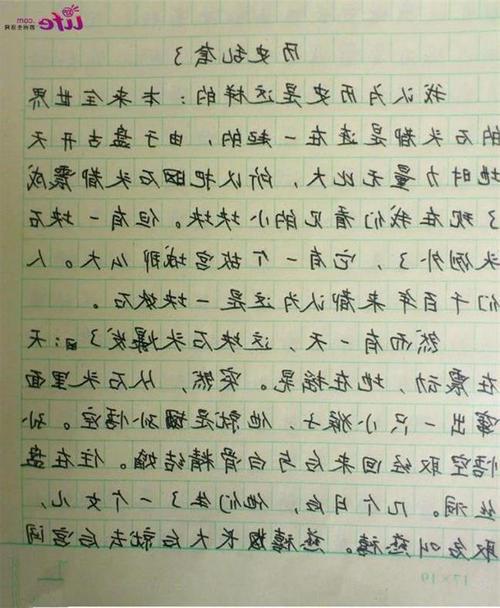 life.com
历史乱套了
我认为历史是这样的：本来全世界
的石头都是连在一起的，由于盘古开天
地时力量无比大，所以把石头都震成
了现在我们看见的小块块。但有一块石
头例外了，它有一个故宫城那么大。人
们千百年来都认为这是一块妖石。
然而有一天，这块石头爆发了：天
在震动，地在摇晃。突然，从石头里面
窜出一只小猴子，他就是孙悟空。孙
悟空取经回来后与白骨精结婚。住在盘
丝洞。几个月后，他们生了一个女儿，
取名叫慈禧。慈禧长大后就去后宫闯
17×19